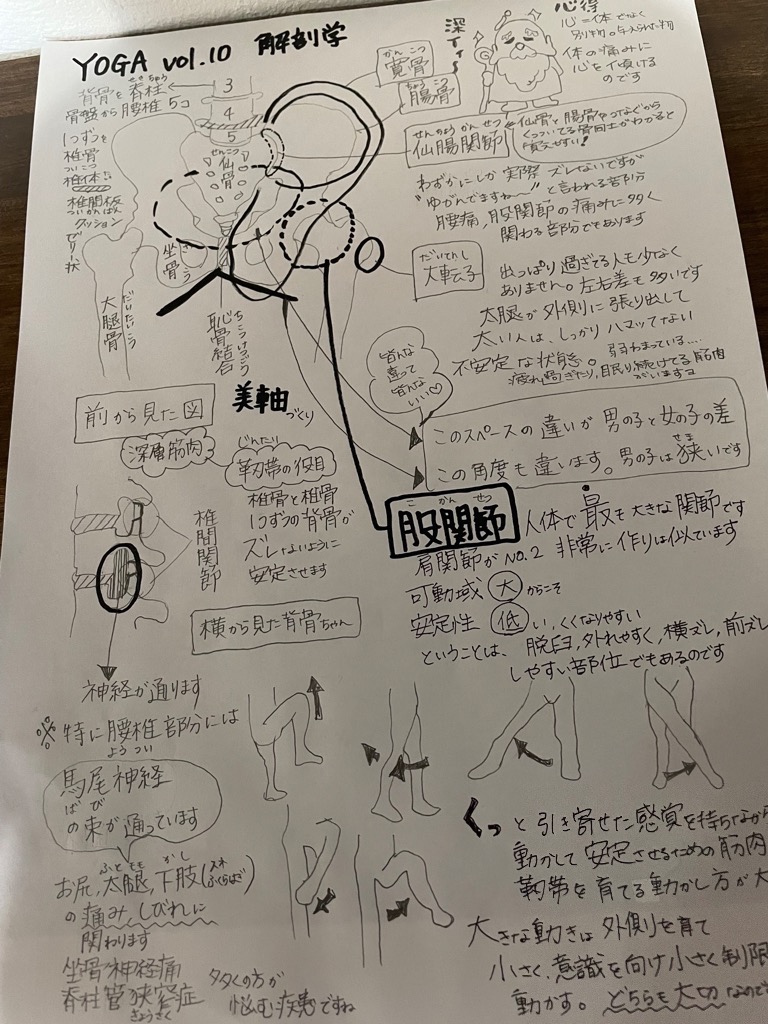 YOGA vol.10 解剖学
心得
心=体でなく
別物。与えられた物
体の痛みに
心を傾ける
のです
深イイ〜
背骨を脊柱
せきちゅう
骨盤から腰椎5コ
1つずつを
椎骨
ついこつ
椎体
椎間板
ついかんばん
クッション
3
4
5
せんこつ
仙骨
かんこつ
寛骨
ちょうこつ
腸骨
せんちょうかんせつ
仙腸関節
仙骨と腸骨
くっついてる骨同士がわかると
覚えやすい!
わずかにしか実際ズレないですが
"ゆがんでますね〜"と言われる部分
腰痛,股関節の痛みに多く
関わる部分でもあります
だいてんし
大転子
出っぱり過ぎてる人も少なく
ありません。左右差も多いです
太腿が外側に張り出して
太い人は、しっかりハマッてない
不安定な状態。弱わまっている…
疲れ過ぎたり,眠り続けてる筋肉
がいますヨ
坐骨
ざこつ
大腿骨
だいたいこつ
恥骨結合
ちこつけつごう
皆んな
違って
皆んな
いい♡
前から見た図
美軸づくり
このスペースの違いが男の子と女の子の差
この角度も違います。男の子は狭いです
せま
深層筋肉
じんたい
靭帯の役目
椎骨と椎骨
1つずつの背骨が
ズレないように
安定させます
椎間関節
横から見た背骨ちゃん
こかんせつ
股関節
人体で最も大きな関節です
肩関節がNO.2 非常に作りは似ています
可動域 大 からこそ
安定性 低い,くくなりやすい
ということは、脱臼,外れやすく,横ズレ,前ズレ
しやすい部位でもあるのです
神経が通ります
※特に腰椎部分には
ようつい
馬尾神経
ばび
の束が通っています
ふともも かし
お尻,太腿,下肢(スネ ふくらはぎ)
の痛み,しびれに
関わります
坐骨神経痛
脊柱管狭窄症
きょうさく
多くの方が
悩む疾患ですね
くっと引き寄せた感覚を持ちながら
動かして安定させるための筋肉
靭帯を育てる動かし方が大
大きな動きは外側を育て
小さく,意識を向け小さく制限
動かす。どちらも大切なので